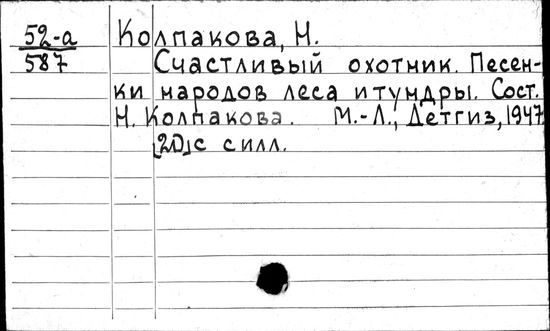 52-а
587
Колпакова, Н.
Счастливый охотник. Песен-
ки народов леса и тундры. Сост.
Н. Колпакова. М.-Л., Детгиз, 1947
[20] с с илл.